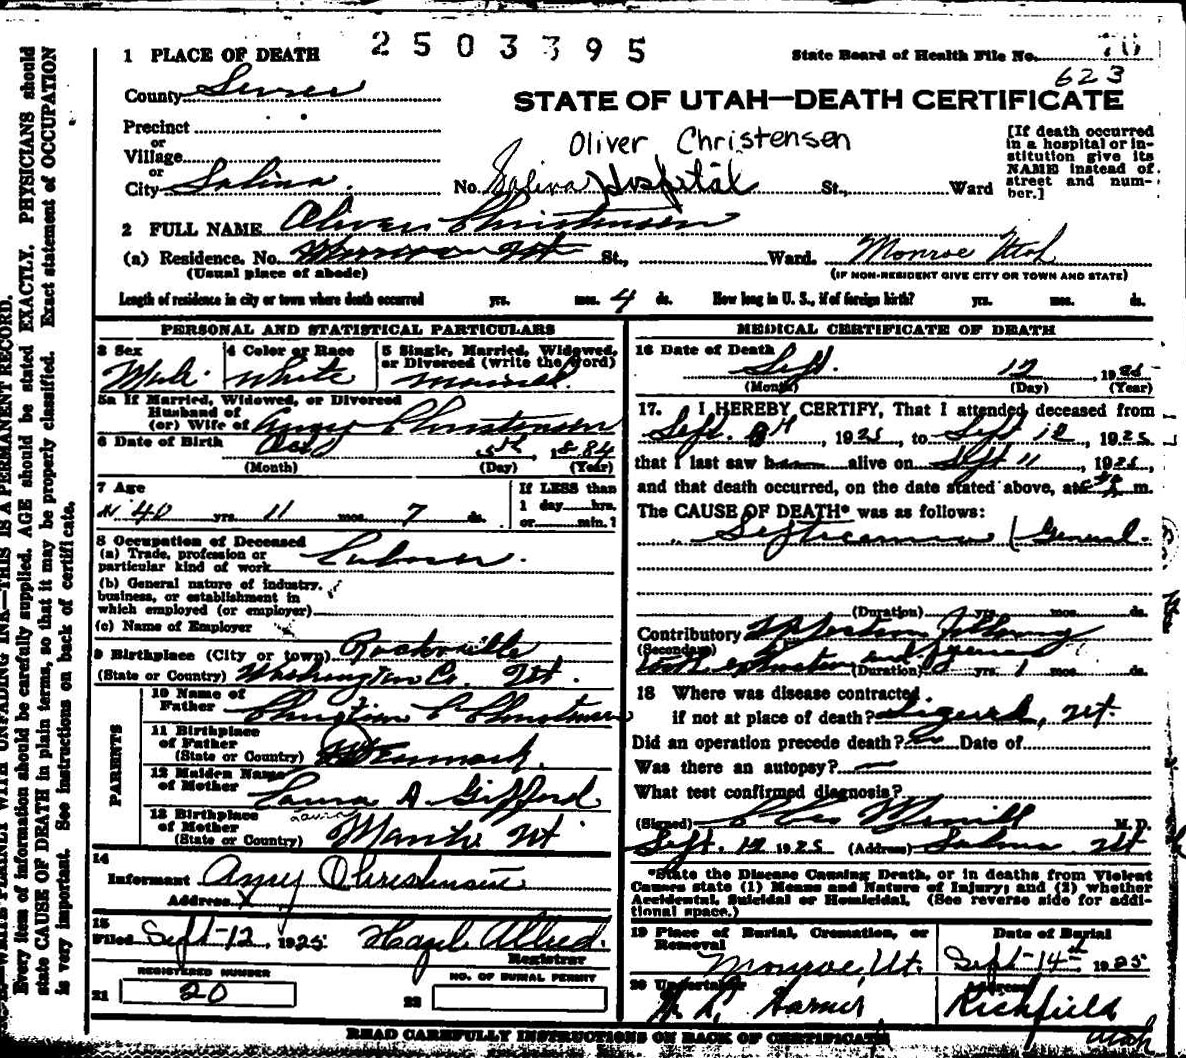 2503395
1 PLACE OF DEATH
State Board of Health File No. 70
623
County Sevier
STATE OF UTAH—DEATH CERTIFICATE
Precinct
or
Village
or
City Salina
Oliver Christensen
No. Salina Hospital St., Ward
[If death occurred
in a hospital or in-
stitution give its
NAME instead of
street and num-
ber.]
2 FULL NAME Oliver Christensen
(a) Residence. No. Monroe Ut St., Ward. Monroe Utah
(Usual place of abode)
(IF NON-RESIDENT GIVE CITY OR TOWN AND STATE)
Length of residence in city or town where death occurred yrs. mos. 4 ds. How long in U. S., if of foreign birth? yrs. mos. ds.
PERSONAL AND STATISTICAL PARTICULARS
3 Sex
Male
4 Color or Race
White
5 Single, Married, Widowed,
or Divorced (write the word)
married
5a If Married, Widowed, or Divorced
Husband of
(or) Wife of Christensen
6 Date of Birth Oct 5th, 1884
(Month) (Day) (Year)
7 Age
40 yrs. 11 mos. 7 ds.
If LESS than
1 day hrs.
or min.?
8 Occupation of Deceased
(a) Trade, profession or
particular kind of work Laborer.
(b) General nature of industry,
business, or establishment in
which employed (or employer)
(c) Name of Employer
9 Birthplace (City or town) Rockville
(State or Country) Washington Co. Ut.
PARENTS
10 Name of
Father Christian C Christensen
11 Birthplace
of Father
(State or Country) Denmark.
12 Maiden Name
of Mother Laura A Gifford
Lavina
13 Birthplace
of Mother
(State or Country) Manti Ut
14
Informant Christensen
Address
15
Filed Sept-12, 1925 Hazel Allred.
Registrar
REGISTERED NUMBER
21 20
NO. OF BURIAL PERMIT
22
MEDICAL CERTIFICATE OF DEATH
16 Date of Death Sept. 12, 1925
(Month) (Day) (Year)
17. I HEREBY CERTIFY, That I attended deceased from
Sept. 8th, 1925, to Sept 12, 1925
that I last saw h alive on Sept 11, 1925,
and that death occurred, on the date stated above, at m.
The CAUSE OF DEATH* was as follows:
Septicaemia (General
(Duration) yrs. mos. ds.
Contributory Infection following
(Secondary)
tooth extraction and
(Duration) yrs. 1 mos. ds.
18 Where was disease contracted
if not at place of death? Sigurd, Ut.
Did an operation precede death? no Date of
Was there an autopsy? no
What test confirmed diagnosis?
(Signed) Chas Merrill M.D.
Sept. 12 1925 (Address) Salina Ut
*State the Disease Causing Death, or in deaths from Violent
Causes state (1) Means and Nature of Injury; and (2) whether
Accidental, Suicidal or Homicidal. (See reverse side for addi-
tional space.)
19 Place of Burial, Cremation, or
Removal
Monroe, Ut.
Date of Burial
Sept-14th 1925
20 Undertaker
Address
Richfield
Utah
READ CAREFULLY INSTRUCTIONS ON BACK OF CERTIFICATE
WRITE PLAINLY WITH UNFADING INK—THIS IS A PERMANENT RECORD.
Every item of information should be carefully supplied. AGE should be stated EXACTLY. PHYSICIANS should
state CAUSE OF DEATH in plain terms, so that it may be properly classified. Exact statement of OCCUPATION
is very important. See instructions on back of certificate.